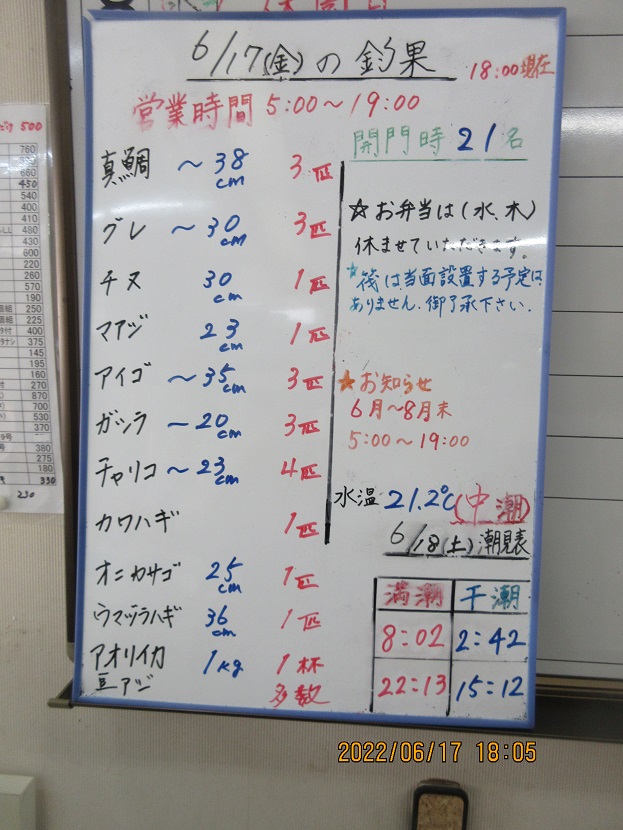 6/17(金)の釣果 18:00現在
営業時間 5:00〜19:00
開門時 21名
真鯛 〜38cm 3匹
グレ 〜30cm 3匹
チヌ 30cm 1匹
マアジ 23cm 1匹
アイゴ 〜35cm 3匹
ガシラ 〜20cm 3匹
チャリコ 〜23cm 4匹
カワハギ 1匹
オニカサゴ 25cm 1匹
ウマヅラハギ 36cm 1匹
アオリイカ 1kg 1杯
豆アジ 多数
☆お弁当は(水、木)
休ませていただきます。
☆筏は当面設置する予定は
ありません。御了承下さい。
★お知らせ
6月〜8月末
5:00〜19:00
水温 21.2℃(中潮)
6/18(土)潮見表
満潮 干潮
8:02 2:42
22:13 15:12
2022/06/17 18:05
500
760
660
450
540
410
480
430
600
220
260
570
190
250
225
400
375
145
195
160
270
870
700
530
370
380
275
180
230